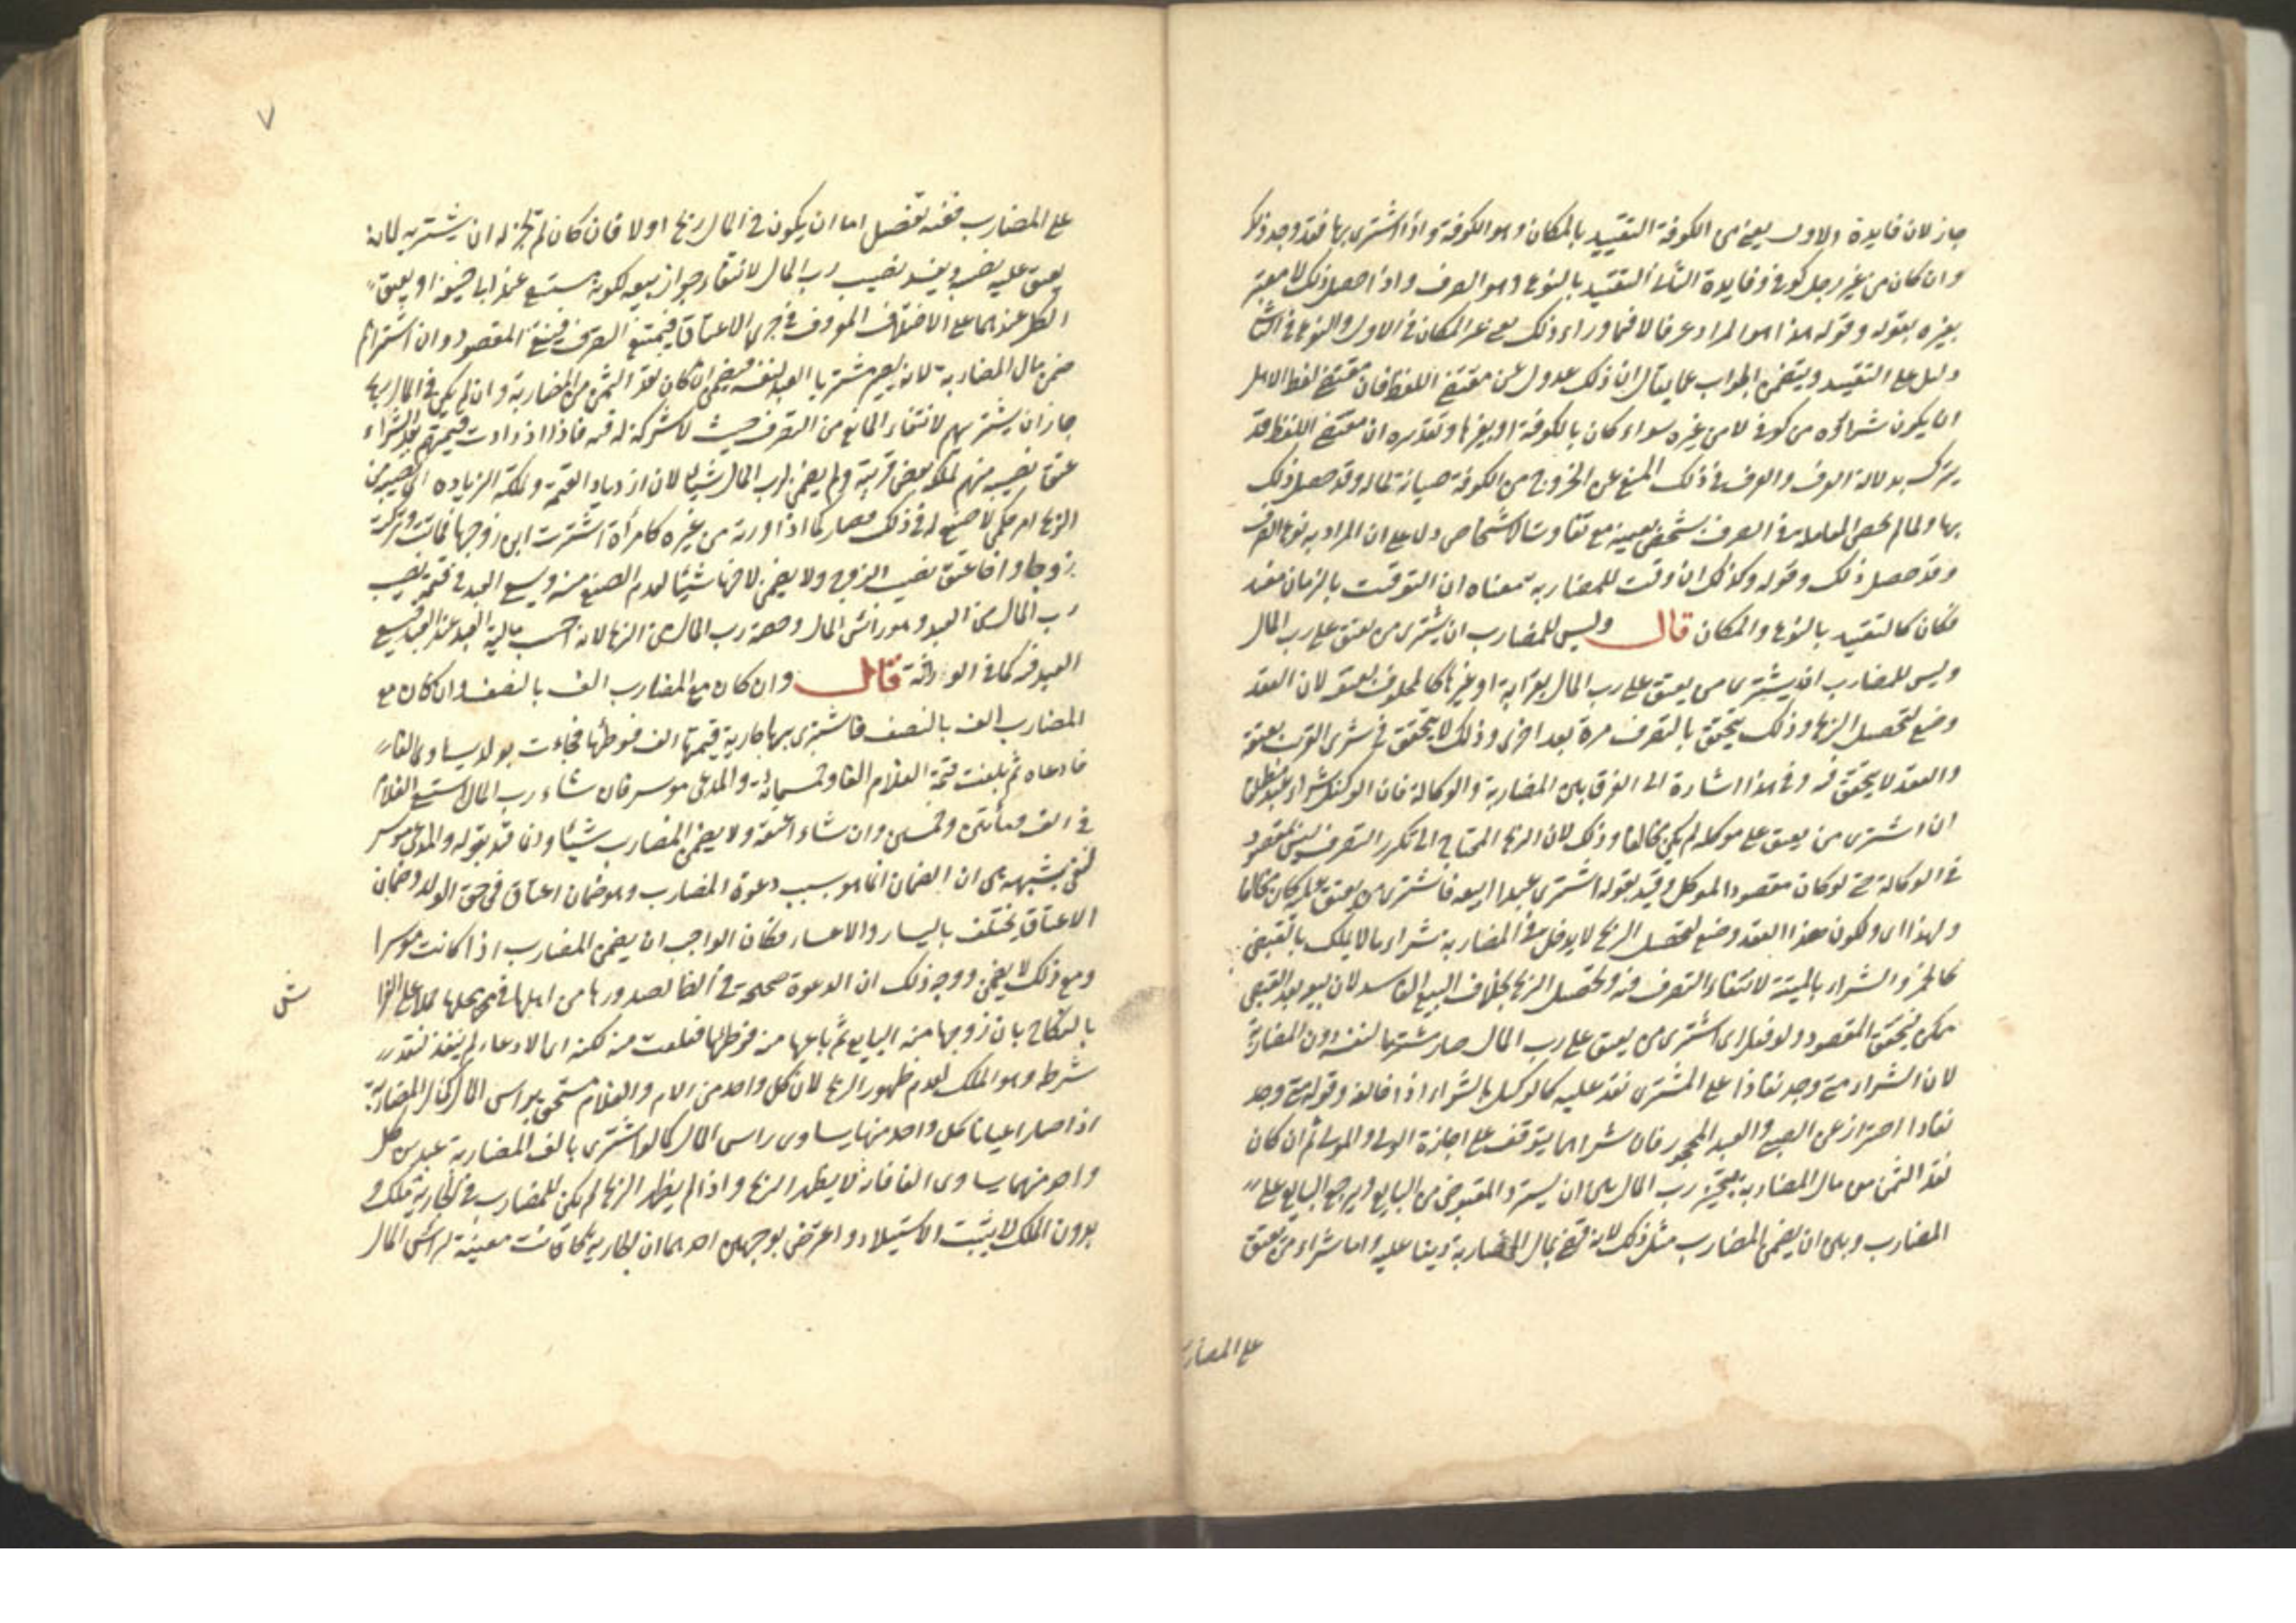 جاز لان فايدة الاول يعني من الكوفة التقييد بالمكان وهو الكوفة واذا اشترى بها فقد وجد ذلك
وان كان من غير رجل كوفي وفايدة الثاني التقييد بالنوع وهو الصرف واذا حصل ذلك لا معتبر
بغيره بقوله وقوله هذا هو المراد عرفا لا فيما وراء ذلك يعني عن المكان في الاول والنوع في الثاني
دليل على التقييد ويتضمن الجواب عما يقال ان ذلك عدول عن مقتضى اللفظ فان مقتضى لفظ الاهل
ان يكون شراؤه من كوفي لا من غيره سواء كان بالكوفة او بغيرها وتقديره ان مقتضى اللفظ قد
يترك بدلالة العرف والعرف في ذلك المنع عن الخروج من الكوفة صيانة لماله وقد حصل ذلك
بها ولما لم يخص المعاملة في الصرف بشخص بعينه مع تفاوت الاشخاص دل على ان المراد به نوع الصرف
وقد حصل ذلك وقوله وكذلك ان وقت للمضاربة معناه ان التوقيت بالزمان مفيد
فكان كالتقييد بالنوع والمكان قال وليس للمضارب ان يشترى من يعتق على رب المال
وليس للمضارب ان يشترى من يعتق على رب المال بقرابة او غيرها كالمحلوف بعتقه لان العقد
وضع لتحصيل الربح وذلك يتحقق بالتصرف مرة بعد اخرى وذلك لا يتحقق في شرى القريب لعتقه
والعقد لا يتحقق فيه وفي هذا اشارة الى الفرق بين المضاربة والوكالة فان الوكيل بشراء عبد مطلقا
ان اشترى من يعتق على موكله لم يكن مخالفا وذلك لان الربح المحتاج الى تكرر التصرف ليس بمقصود
في الوكالة حتى لو كان مقصود الموكل وقيد بقوله اشترى عبدا ابيعه فاشترى من يعتق عليه كان مخالفا
ولهذا اى ولكون هذا العقد وضع لتحصيل الربح لا يدخل في المضاربة شراء ما لا يملك بالقبض
كالخمر والشراء بالميتة لانتفاء التصرف فيه وتحصيل الربح بخلاف البيع الفاسد لان بيعه بعد القبض
ممكن فيتحقق المقصود ولو فعل اى اشترى من يعتق على رب المال صار مشتريا لنفسه دون المضاربة
لان الشراء متى وجد نفاذا على المشترى نفذ عليه كالوكيل بالشراء اذا خالف وقوله متى وجد
نفاذا احتراز عن الصبي والعبد المحجور فان شراهما يتوقف على اجازة الولى والمولى ثم ان كان
نقد الثمن من مال المضاربة يتخير رب المال بين ان يسترد المقبوض من البايع ويرجع البايع على
المضارب وبين ان يضمن المضارب مثل ذلك لانه قضى بمال المضاربة دينا عليه واما شراء من يعتق
على المضارب
٧
على المضارب ففيه تفصيل اما ان يكون في المال ربح او لا فان كان لم يجز له ان يشتريه لانه
يعتق عليه نصيبه ويفسد نصيب رب المال لانتفاء جواز بيعه لكونه مستسعى عند ابي حنيفة او يعتق
الكل عندهما على الاختلاف المعروف في تجزى الاعتاق فيمتنع التصرف فينتفي المقصود وان اشتراهم
ضمن مال المضاربة لانه يصير مشتريا العبد لنفسه فيضمن ان كان نقد الثمن من المضاربة وان لم يكن في المال ربح
جاز ان يشتريهم لانتفاء المانع من التصرف حيث لا شركة له فيه فاذا ازدادت قيمتهم بعد الشراء
عتق نصيبه منهم لملكه بعض قريبه ولم يضمن لرب المال شيئا لان ازدياد القيمة وملكه الزيادة اى نصيبه من
الربح امر حكمي لا صنع له في ذلك فصار كما اذا ورثه من غيره كامرأة اشترت ابن زوجها فماتت وتركت
زوجا واخا عتق نصيب الزوج ولا يضمن لاخيها شيئا لعدم الصنع منه ويسعى العبد في قيمة نصيب
رب المال من العبد وهو رأس المال وحصة رب المال من الربح لانه احتبس مالية العبد عند العبد فيسعى
العبد فيه كما في الوراثة قال وان كان مع المضارب الف بالنصف وان كان مع
المضارب الف بالنصف فاشترى بها جارية قيمتها الف فوطئها فجاءت بولد يساوى الفا
فادعاه ثم بلغت قيمة الغلام الفا وخمسمائة والمدعي موسر فان شاء رب المال استسعى الغلام
في الف ومأتين وخمسين وان شاء اعتقه ولا يضمن المضارب شيئا وانما قيد بقوله والمدعي موسر
لنفي شبهة هى ان الضمان انما هو بسبب دعوة المضارب وهو ضمان اعتاق في حق الولد وضمان
الاعتاق يختلف باليسار والاعسار فكان الواجب ان يضمن المضارب اذا كانت موسرا
ومع ذلك لا يضمن ووجه ذلك ان الدعوة صحيحة في الفا لصدورها من اهلها في محلها حملا على الفراش
بالنكاح بان زوجها منه البايع ثم باعها منه فوطئها فعلقت منه لكنه اى الادعاء لم ينفذ لفقد
شرطه وهو الملك لعدم ظهور الربح لان كل واحد من الام والغلام مستحق براس المال كمال المضاربة
اذا صار اعيانا كل واحد منها يساوى راس المال كما لو اشترى بالف المضاربة عبدين كل
واحد منهما يساوى الفا فانه لا يظهر الربح واذا لم يظهر الربح لم يكن للمضارب في الجارية ملك و
بدون الملك لا يثبت الاستيلاد واعترض بوجهين احدهما ان الجارية كانت معينة لراس المال